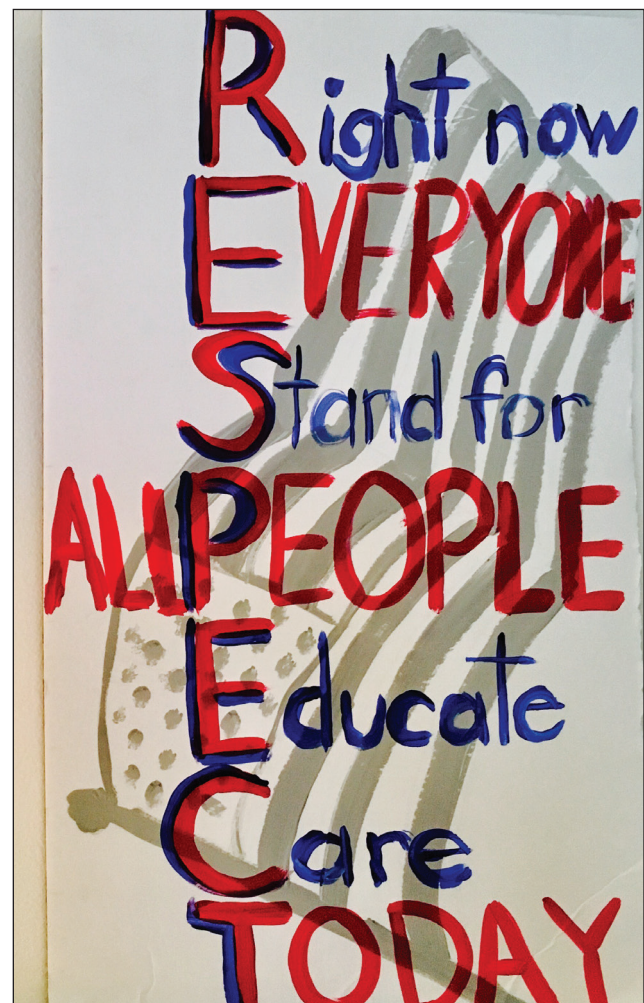 Right now
EVERYONE
Stand for
ALL PEOPLE
Educate
Care
TODAY